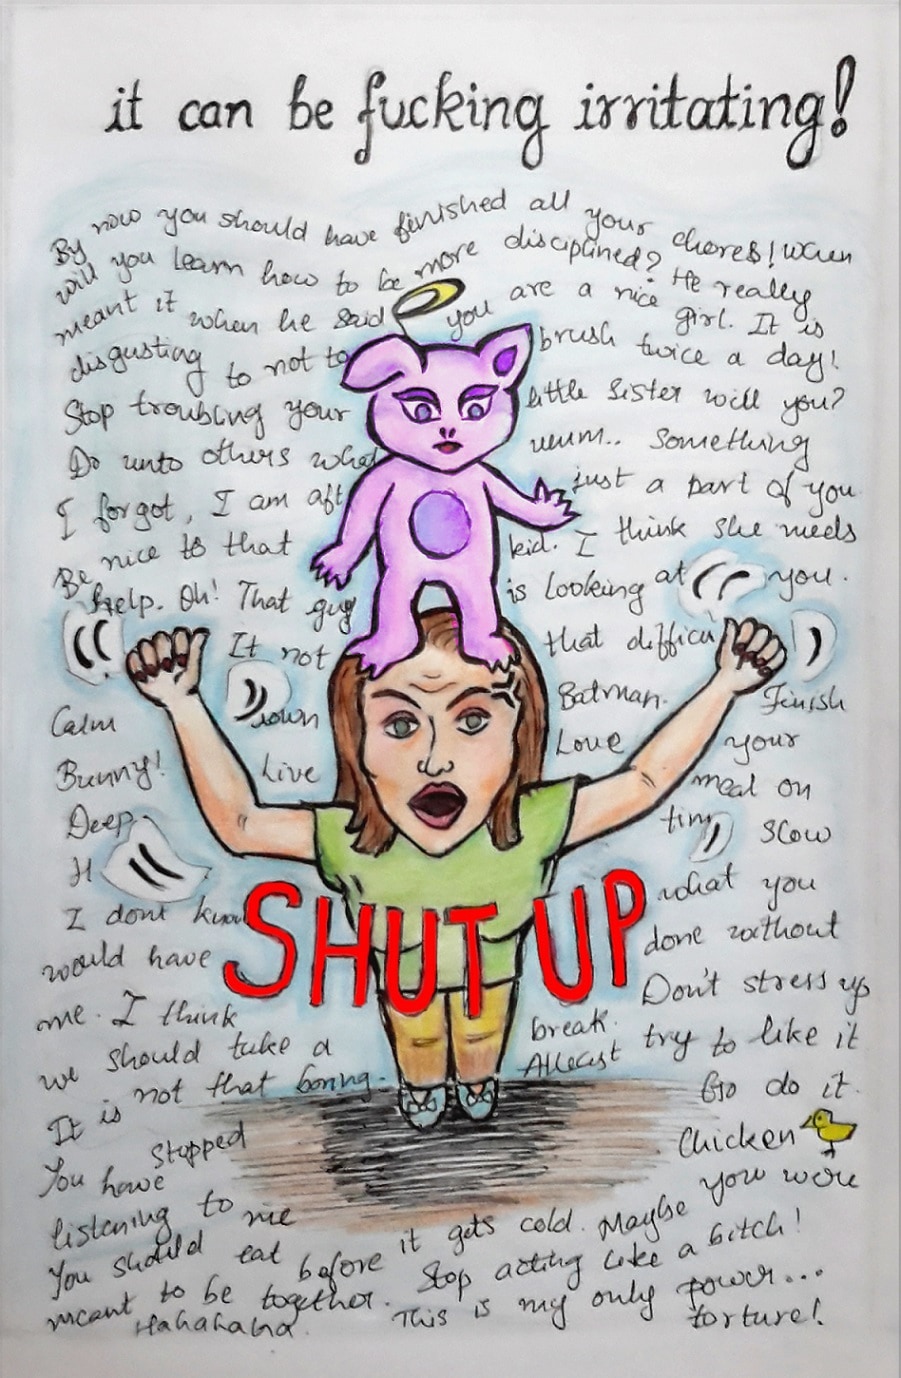 it can be fucking irritating!
By now you should have finished all your chores! When
will you learn how to be more disciplined? He really
meant it when he said you are a nice girl. It is
disgusting to not to brush twice a day!
Stop troubling your little sister will you?
Do unto others what umm.. something
I forgot, I am aft just a part of you
Be nice to that kid. I think she needs
help. Oh! That guy is looking at you.
It not that difficu
Calm down Batman. Finish
Bunny! Live Love your
meal on
Deep. tim slow
H
I dont know what you
would have done without
me. I think Don't stress up
we should take a break.
It is not that boring. Atleast try to like it
Go do it.
Chicken
You have stopped
listening to me
You should eat before it gets cold. Maybe you were
meant to be together. Stop acting like a bitch!
Hahahaha. This is my only power... torture!
SHUT UP